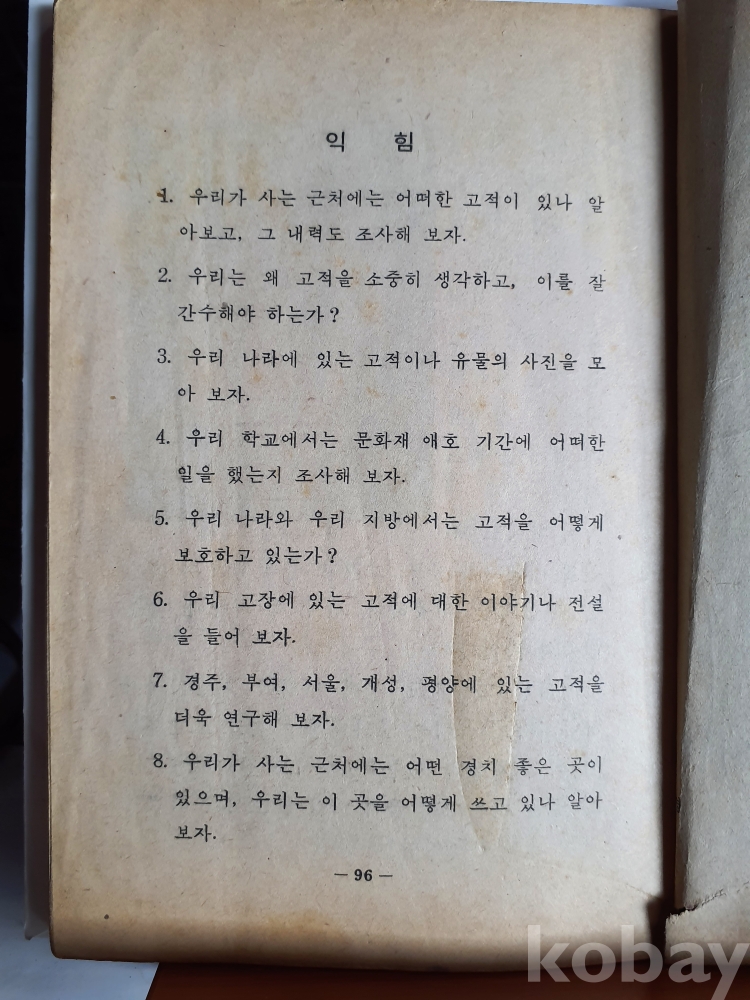 익 힘
1. 우리가 사는 근처에는 어떠한 고적이 있나 알
아보고, 그 내력도 조사해 보자.
2. 우리는 왜 고적을 소중히 생각하고, 이를 잘
간수해야 하는가?
3. 우리 나라에 있는 고적이나 유물의 사진을 모
아 보자.
4. 우리 학교에서는 문화재 애호 기간에 어떠한
일을 했는지 조사해 보자.
5. 우리 나라와 우리 지방에서는 고적을 어떻게
보호하고 있는가?
6. 우리 고장에 있는 고적에 대한 이야기나 전설
을 들어 보자.
7. 경주, 부여, 서울, 개성, 평양에 있는 고적을
더욱 연구해 보자.
8. 우리가 사는 근처에는 어떤 경치 좋은 곳이
있으며, 우리는 이 곳을 어떻게 쓰고 있나 알아
보자.
— 96 —
kobay